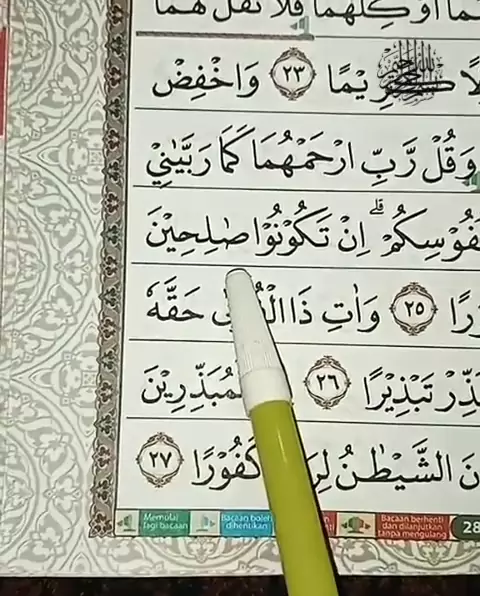 أَوْ كِلٰهُمَا فَلَا تَقُلْ لَّهُمَا
كَرِيْمًا ٢٣ وَاخْفِضْ
وَقُلْ رَّبِّ ارْحَمْهُمَا كَمَا رَبَّيٰنِيْ
نُفُوْسِكُمْ ۗ اِنْ تَكُوْنُوْا صٰلِحِيْنَ
٢٥ وَاٰتِ ذَا حَقَّهٗ
تَبْذِيْرًا ٢٦
الشَّيْطٰنُ كَفُوْرًا ٢٧
Memulai lagi bacaan
Bacaan boleh dihentikan
Bacaan berhenti dan dilanjutkan tanpa mengulang
28